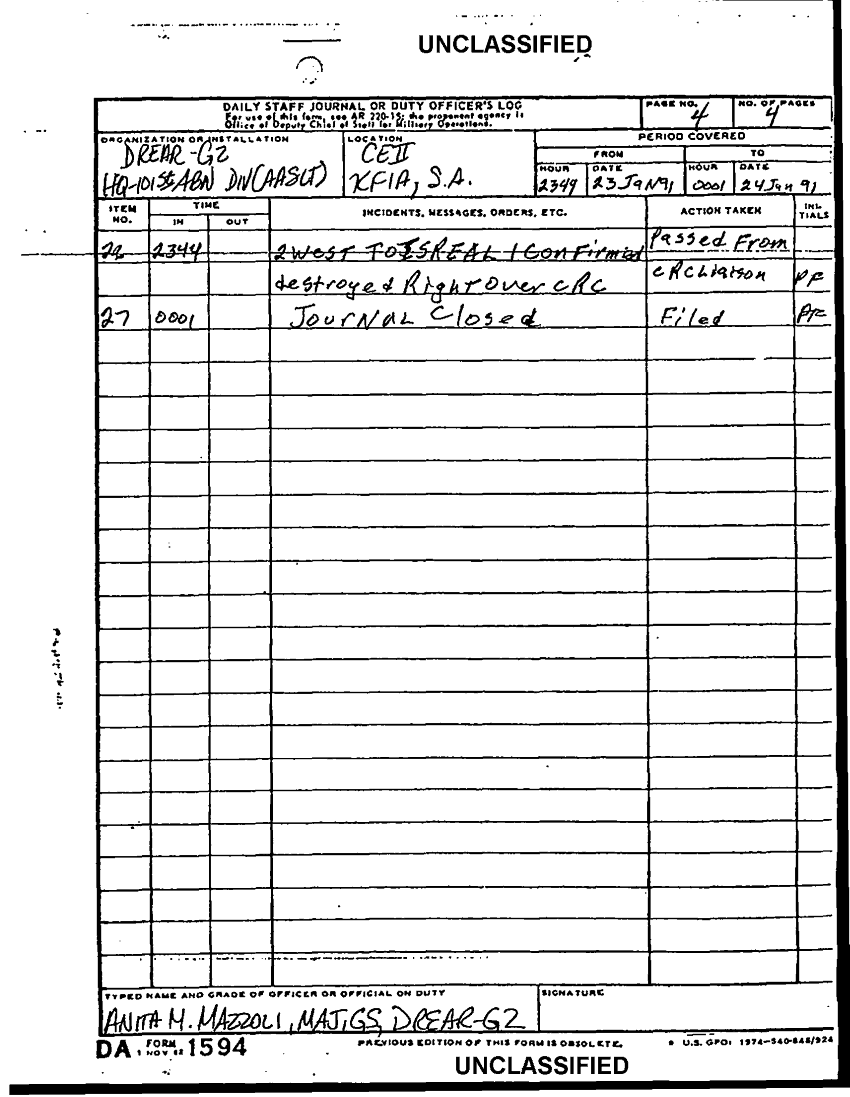 UNCLASSIFIED
DAILY STAFF JOURNAL OR DUTY OFFICER'S LOG
For use of this form, see AR 220-15; the proponent agency is
Office of Deputy Chief of Staff for Military Operations.
PAGE NO. 4
NO. OF PAGES 4
ORGANIZATION OR INSTALLATION
DREAR-G2
HQ-101st ABN DIV (AASLT)
LOCATION
CE II
KFIA, S.A.
PERIOD COVERED
FROM TO
HOUR DATE HOUR DATE
2349 23 JaN 91 0001 24 Jan 91
ITEM NO. TIME IN OUT INCIDENTS, MESSAGES, ORDERS, ETC. ACTION TAKEN INI- TIALS
2344 2 West TO ISREAL 1 Confirmed Passed From
destroyed Right over CRC CRC Liaison PF
27 0001 Journal Closed Filed PF
TYPED NAME AND GRADE OF OFFICER OR OFFICIAL ON DUTY
SIGNATURE
ANITA M. MAZZOLI, MAJ, GS, DREAR-G2
DA FORM 1 NOV 62 1594 PREVIOUS EDITION OF THIS FORM IS OBSOLETE. U.S. GPO: 1974-540-848/924
UNCLASSIFIED